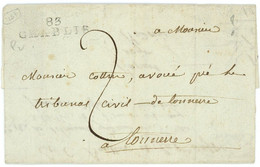 83
CHABLIS
2
a Monsieur
Monsieur Cottin, avoué pré le
tribunal Civil de tonnerre
a Tonnerre